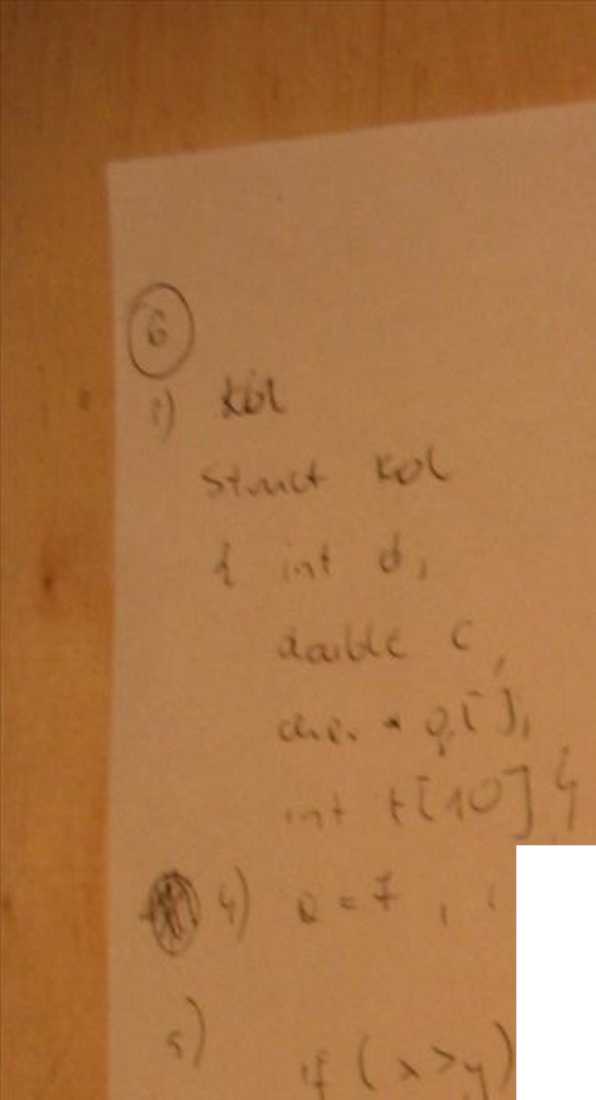 6
1) kol
struct kol
{ int d;
double c,
int t[10] }
4) = 7 ,
5)
if (x>y)